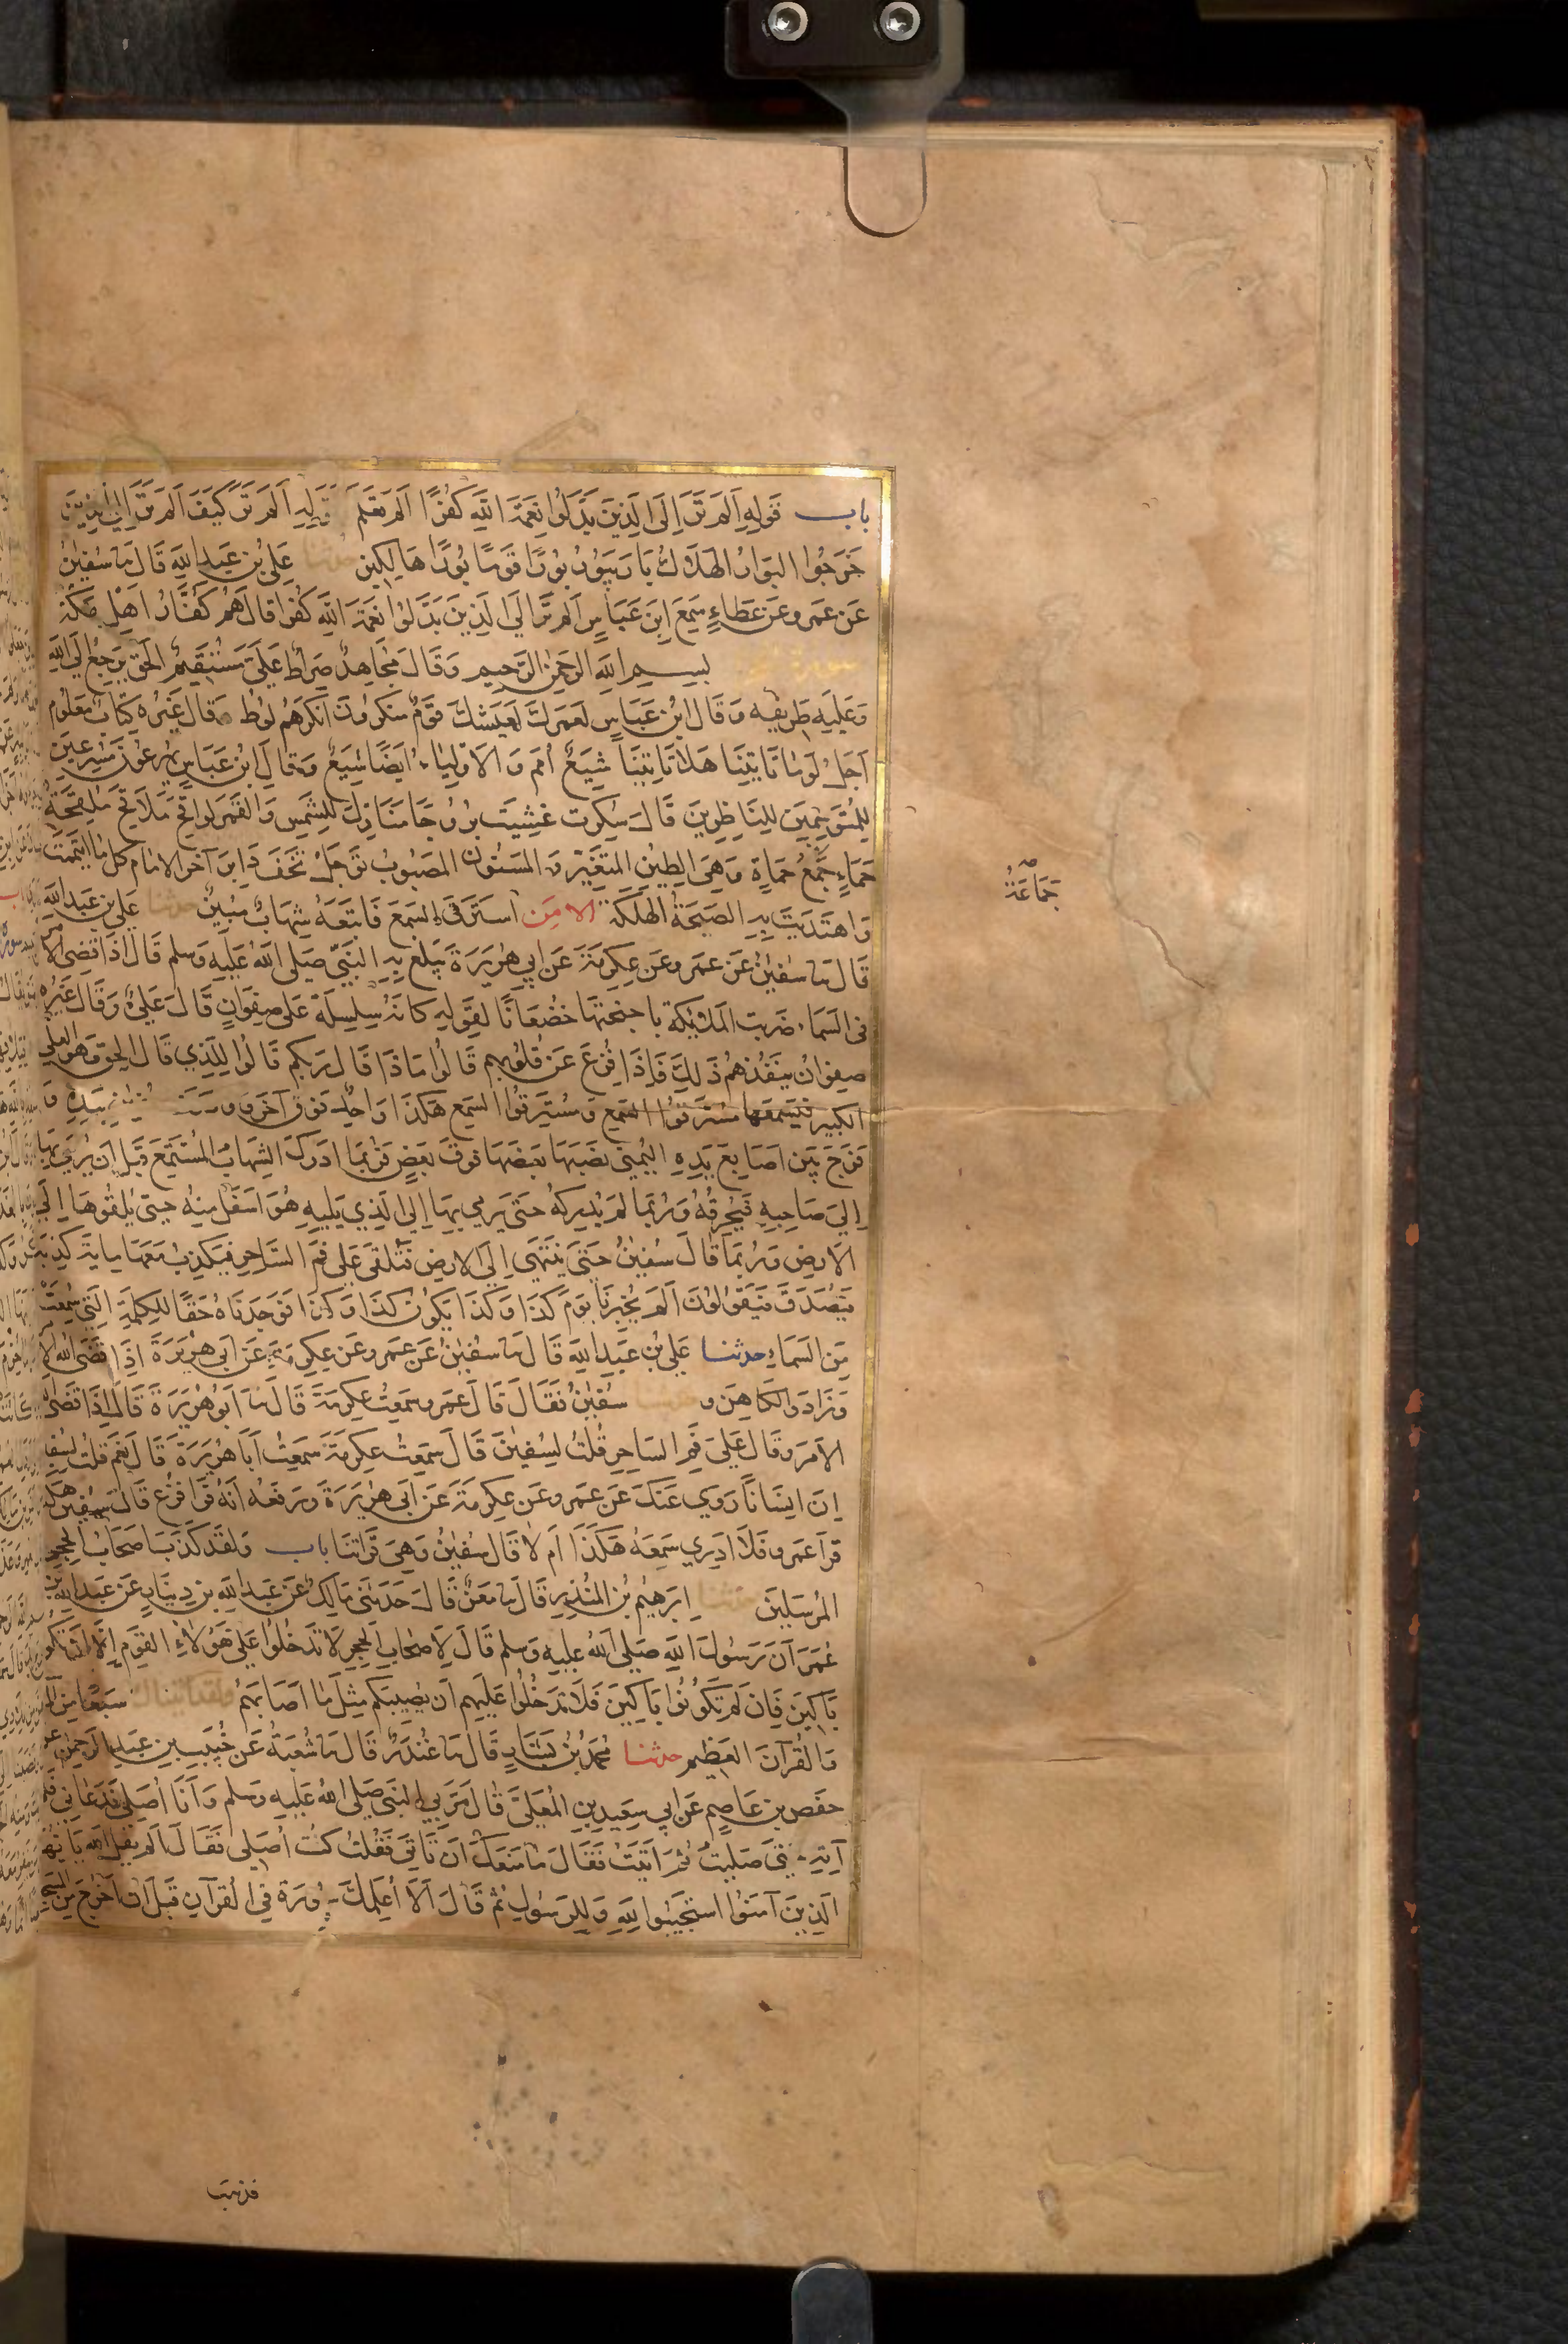 باب قَوْلِهِ اَلَمْ تَرَ اِلَى الَّذِينَ بَدَّلُوا نِعْمَةَ اللّٰهِ كُفْرًا اَلَمْ تَعْلَمْ كَقَوْلِهِ اَلَمْ تَرَ كَيْفَ اَلَمْ تَرَ اِلَى الَّذِينَ
خَرَجُوا البَوَارُ الهَلَاكُ بَارَ يَبُورُ بُورًا قَوْمًا بُورًا هَالِكِين حدثنا عَلِيُّ بْن عَبدِ اللّٰهِ قَالَ نا سُفْيٰنُ
عَنْ عَمرو عَنْ عَطَاءٍ سَمِعَ ابنَ عَبَّاسٍ اَلَمْ تَرَ اِلَى الَّذِينَ بَدَّلُوا نِعْمَةَ اللّٰهِ كُفْرًا قَالَ هُمْ كُفَّارُ اَهْلِ مَكَّة
سورة الحجر بِسْمِ اللّٰهِ الرَّحْمٰنِ الرَّحِيم وَقَالَ مُجَاهِدٌ صِرَاطٌ عَلَيَّ مُسْتَقِيمٌ الحَقُّ يَرْجِعُ اِلَى اللّٰهِ
وَعَلَيهِ طَرِيقُه وَقَالَ ابْن عَبَّاسٍ لَعَمْرُكَ لَعَيْشُكَ قَوْمٌ مُنْكَرُونَ اَنْكَرَهُمْ لُوط وَقَالَ غَيْرُه كِتَابٌ مَعْلُوم
اَجَلٌ لَوْ مَا تَاتِينَا هَلَّا تَاتِينَا شِيَعٌ اُمَمٌ وَالاَوْلِيَاء اَيضًا شِيَعٌ وَقَالَ ابْن عَبَّاسٍ يُهْرَعُونَ مُسْرِعِينَ
لِلْمُتَوَسِّمِينَ لِلنَّاظِرِينَ قَالَ سُكِّرَت غُشِيَت بُرُوجًا مَنَازِلَ لِلشَّمسِ وَالقَمَر لَوَاقِحَ مَلَاقِحَ مُلْقِحَةً
حَمَاءٍ جَمْعُ حَمَاةٍ وَهِيَ الطِّينُ المُتَغَيِّر وَالمَسْنُون المَصْبُوبُ تَوْجَلْ تَخَفْ دَابِرَ آخر لَبِاِمَام الامام كُل مَا ائْتَمَمْتَ
وَاهْتَدَيتَ بِهِ الصَّيحَةُ الهَلَكَة الا مَنِ اسْتَرَقَ السَّمعَ فَاتْبَعَهُ شِهَابٌ مُبِينٌ حدثنا عَلِي بن عَبدِ اللّٰه
قَالَ نا سُفيٰنُ عَن عَمرو عَن عِكرِمَةَ عَن اَبِي هُرَيرَةَ يَبلُغُ بِهِ النَّبِيَّ صَلَى اللّٰهُ عَلَيهِ وَسلم قَالَ اِذَا قَضَى اللّٰهُ الاَمر
فِى السَّمَاء ضَرَبت المَلٰئِكَة بِاَجنِحَتِهَا خُضعَانًا لِقَولِهِ كَاَنَّهُ سِلسِلَةٌ عَلى صَفوَانٍ قَالَ عَلِيٌّ وَقَالَ غَيرُه
صفوَانٌ يَنفُذُهُم ذَلِكَ فَاِذَا فُزِّعَ عَن قُلُوبِهِم قَالُوا مَاذَا قَالَ رَبُّكُم قَالُوا لِلَّذِي قَالَ الحَق وَهو العَلي
الكَبير فيَسمعُهَا مُستَرِقُوا السَّمع وَمُستَرِقُوا السَّمع هكَذَا وَاحِدٌ فَوقَ آخَر بِيَدِهِ وَ
فَرَّجَ بَينَ اَصَابِعِ يَدِهِ اليُمنَى نَصَبَهَا بَعضَهَا فَوقَ بَعضٍ فَرُبَّمَا اَدرَكَ الشِّهَابُ المُستَمِع قَبلَ اَن يَرمِيَ بهَا
اِلَى صَاحِبِهِ فَيُحرِقُهُ وَرُبَّمَا لَم يُدرِكهُ حَتَى يَرمِي بِهَا اِلَى الَّذِي يَلِيهِ هُوَ اَسفَلَ مِنهُ حَتى يُلقُوهَا اِلَى
الاَرضِ وَرُبَّمَا قَالَ سُفيٰنُ حَتَى يَنتَهي اِلَى الارضِ فَتُلقَى عَلَى فَمِ السَّاحِر فَيَكذِبُ مَعَهَا مِايَةَ كَذِبَة
فَيُصَدَّقُ فَيَقُولُونَ اَلَم يُخبِرنَا يَومَ كَذَا وَكَذَا يَكُونُ كَذَا وَكَذَا فَوَجَدنَاهُ حَقًا لِلكَلِمَةِ الَّتِي سُمِعَت
مِنَ السَّمَاءِ حدثنا عَلِيُّ بن عَبدِ اللّٰهِ قَالَ نا سُفيٰنُ عَن عَمرو عَن عِكرِمَةَ عَن اَبِي هُرَيرَةَ اِذَا قَضَى اللّٰه الا
وَزَادَ وَالكَاهِن و سُفيٰنُ فَقَالَ قَالَ عَمرو سَمِعتُ عِكرِمَةَ قَالَ نا اَبُو هُرَيرَةَ قَالَ اِذَا قَضَى اللّٰه
الاَمرَ وَقَالَ عَلَى فَمِ السَّاحِرِ قُلتُ لِسُفيٰنَ قَالَ سَمِعتُ عِكرِمَةَ سَمِعتُ اَبَا هُرَيرَة قَالَ نَعَم قُلتُ لِسُفيٰن
اِنَّ اِنسَانًا رَوَي عَنكَ عَن عَمرو عَن عِكرِمَةَ عَن اَبِي هُرَيرَةَ وَرَفَعَهُ اَنَّهُ قَرَا فُزِّعَ قَالَ سُفيٰن هكَذَا
قَرَا عَمرو فَلَا اَدرِي سَمِعَهُ هَكَذَا اَم لَا قَالَ سُفيٰنُ وَهِيَ قِرَاتُنَا باب وَلَقَد كَذَّبَ اَصحَابُ الحِجرِ
المُرسَلِينَ حدثنا اِبرَهِيمُ بنُ المُنذِرِ قَالَ نا مَعنٌ قَالَ حَدَّثَنَى مَالِكٌ عَن عَبدِ اللّٰهِ بنِ دِينَارٍ عَن عَبدِ اللّٰهِ بن
عُمَرَ اَنَّ رَسُولَ اللّٰهِ صَلَى اللّٰهُ عَلَيهِ وَسلم قَالَ لِاَصحَابِ الحِجرِ لَا تَدخُلُوا عَلَى هَوُلَاءِ القَومِ اِلَّا اَن تَكُونُوا
بَاكِينَ فَاِن لَم تَكُونُوا بَاكِينَ فَلَا تَدخُلُوا عَلَيهِم اَن يُصِيبَكُم مِثلُ مَا اَصَابَهُم ولقد آتيناك سَبعًا مِن المثاني
وَالقُرآنَ العَظِيم حدثنا مُحَمَّدُ بنُ بَشَّارٍ قَالَ نا غُندَرٌ قَالَ نا شُعبَةُ عَن خُبَيبِ بنِ عَبدِ الرَّحمٰنِ عن
حَفصِ بنِ عَاصِمٍ عَن اَبِي سَعِيدِ بنِ المُعَلَّى قَالَ مَرَّ بِي النَّبيُ صَلى اللّٰهُ عَلَيهِ وَسلم وَاَنَا اُصَلِي فَدَعَانِي فَلَم
آتِهِ حتى صَلَّيتُ ثُمَّ اَتَيتُ فَقَالَ مَا مَنَعَكَ اَن تَاتِيَ فَقُلتُ كُنتُ اُصَلِّي فَقَالَ اَلَم يَقُلِ اللّٰهُ يَا اَيُّهَا
الَّذِينَ آمَنُوا استَجِيبُوا لِلّٰهِ وَلِلرَسُولِ ثُم قَالَ اَلَا اُعَلِّمُكَ سُورَة فِي القُرآنِ قَبلَ اَن اَخرُجَ مِنَ المسجد
جَمَاعَةُ
فذهب